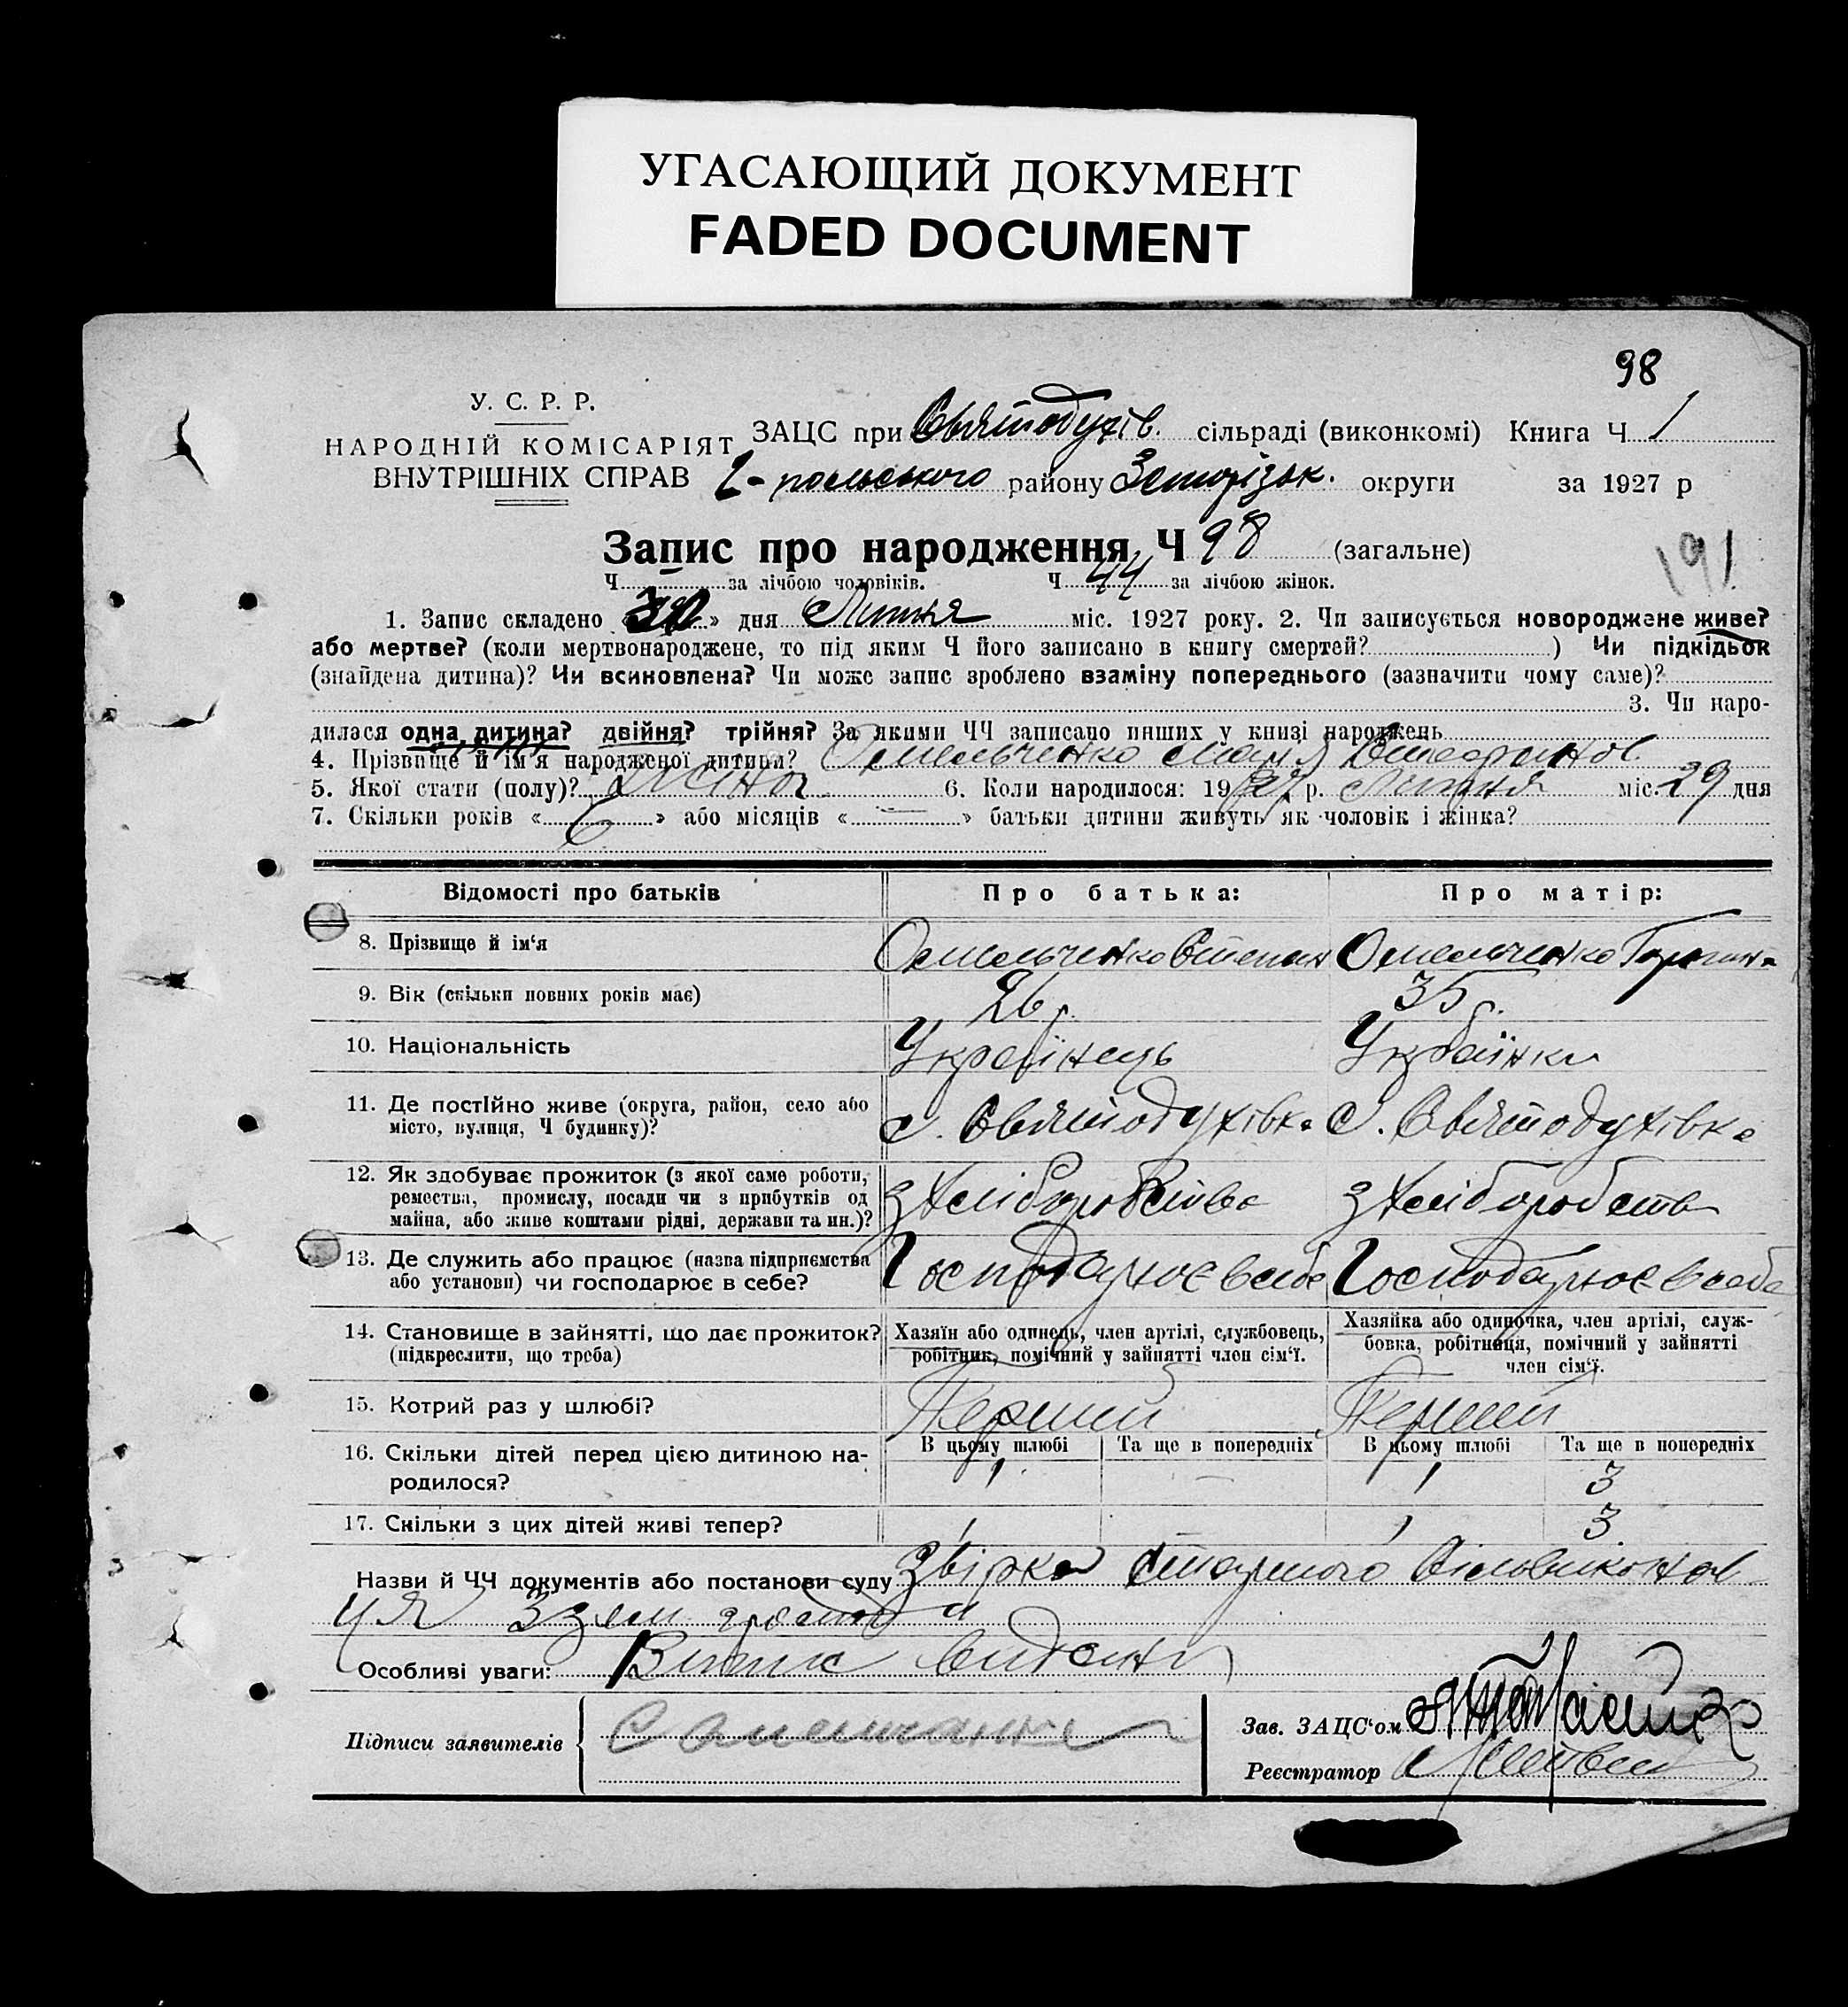 УГАСАЮЩИЙ ДОКУМЕНТ
FADED DOCUMENT
98
У. С. Р. Р.
НАРОДНІЙ КОМІСАРІЯТ
ВНУТРІШНІХ СПРАВ
ЗАЦС при Святодухів. сільраді (виконкомі) Книга Ч 1
району округи за 1927 р
Запис про народження Ч 98 (загальне)
191
Ч — за лічбою чоловіків. Ч 44 за лічбою жінок.
1. Запис складено « 30 » дня Липня міс. 1927 року. 2. Чи записується новороджене живе?
або мертве? (коли мертвонароджене, то під яким Ч його записано в книгу смертей? ) Чи підкідьок
(знайдена дитина)? Чи всиновлена? Чи може запис зроблено взаміну попереднього (зазначити чому саме)?
3. Чи наро-
дилася одна дитина? двійня? трійня? За якими ЧЧ записано инших у книзі народжень
4. Прізвище й ім'я народженої дитини? Омельченко
5. Якої статі (полу)? 6. Коли народилося: 1927 р. Липня міс. 29 дня
7. Скільки років « 6 » або місяців « — » батьки дитини живуть як чоловік і жінка?
Відомості про батьків Про батька: Про матір:
8. Прізвище й ім'я Омельченко Степан Омельченко
9. Вік (скільки повних років має) 26 р. 35 р.
10. Національність Українець Українка
11. Де постійно живе (округа, район, село або
місто, вулиця, Ч будинку)? с. Святодухівка с. Святодухівка
12. Як здобуває прожиток (з якої саме роботи,
ремества, промислу, посади чи з прибутків од
майна, або живе коштами рідні, держави та ин.)? з хліборобства з хліборобства
13. Де служить або працює (назва підприємства
або установи) чи господарює в себе? Господарює в себе Господарює в себе
14. Становище в зайнятті, що дає прожиток?
(підкреслити, що треба)
Хазяїн або одинець, член артілі, службовець,
робітник, помічний у зайнятті член сім'ї.
Хазяйка або одиночка, член артілі, служ-
бовка, робітниця, помічний у зайнятті
член сім'ї.
15. Котрий раз у шлюбі? Перший Перший
В цьому шлюбі Та ще в попередніх В цьому шлюбі Та ще в попередніх
16. Скільки дітей перед цією дитиною на-
родилося? 1 — 1 3
17. Скільки з цих дітей живі тепер? 1 1 3
Назви й ЧЧ документів або постанови суду
Особливі уваги:
Підписи заявителів
Зав. ЗАЦС'ом
Реєстратор